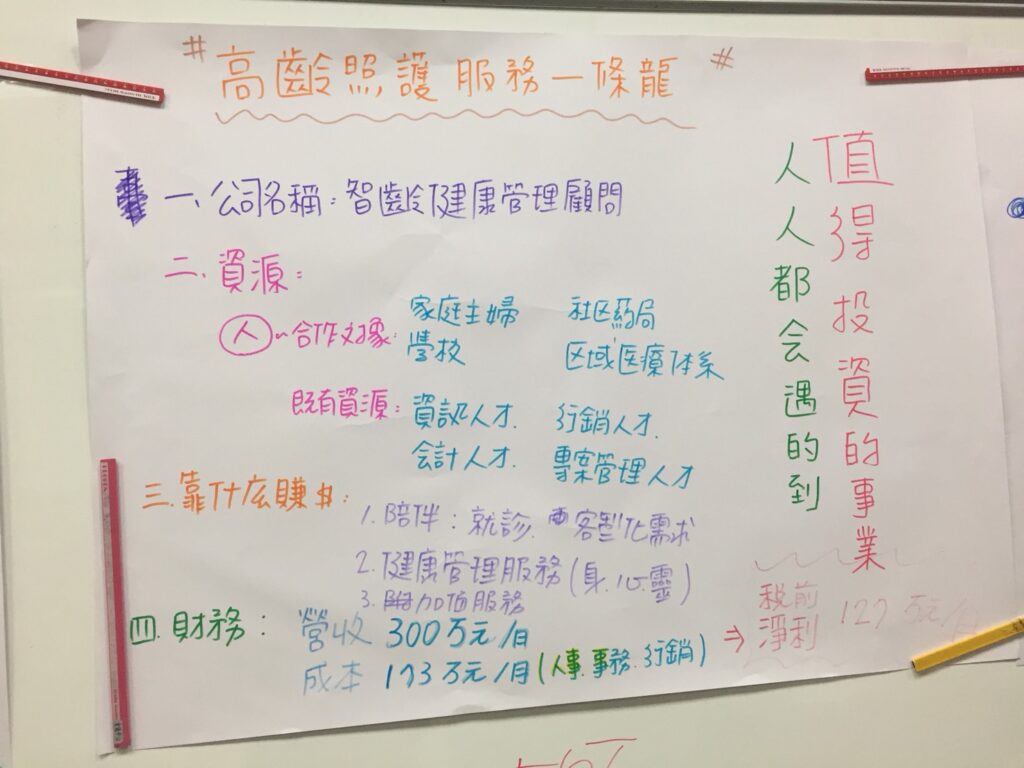 # 高齡照護服務一條龍 #
一、公司名稱：智齡健康管理顧問
二、資源：
人～合作对象：家庭主婦 社区葯局
學校 区域医療体系
既有資源：資訊人才. 行銷人才.
会計人才. 專案管理人才
三.靠什么賺$：
1. 陪伴：就診. 客製化需求
2. 健康管理服務(身.心.靈)
3. 附加值服務
四.財務：營收 300万元/月
成本 173万元/月(人事.事務.行銷) ⇒ 稅前淨利 127万元/月
值得投資的事業
人人都会遇的到